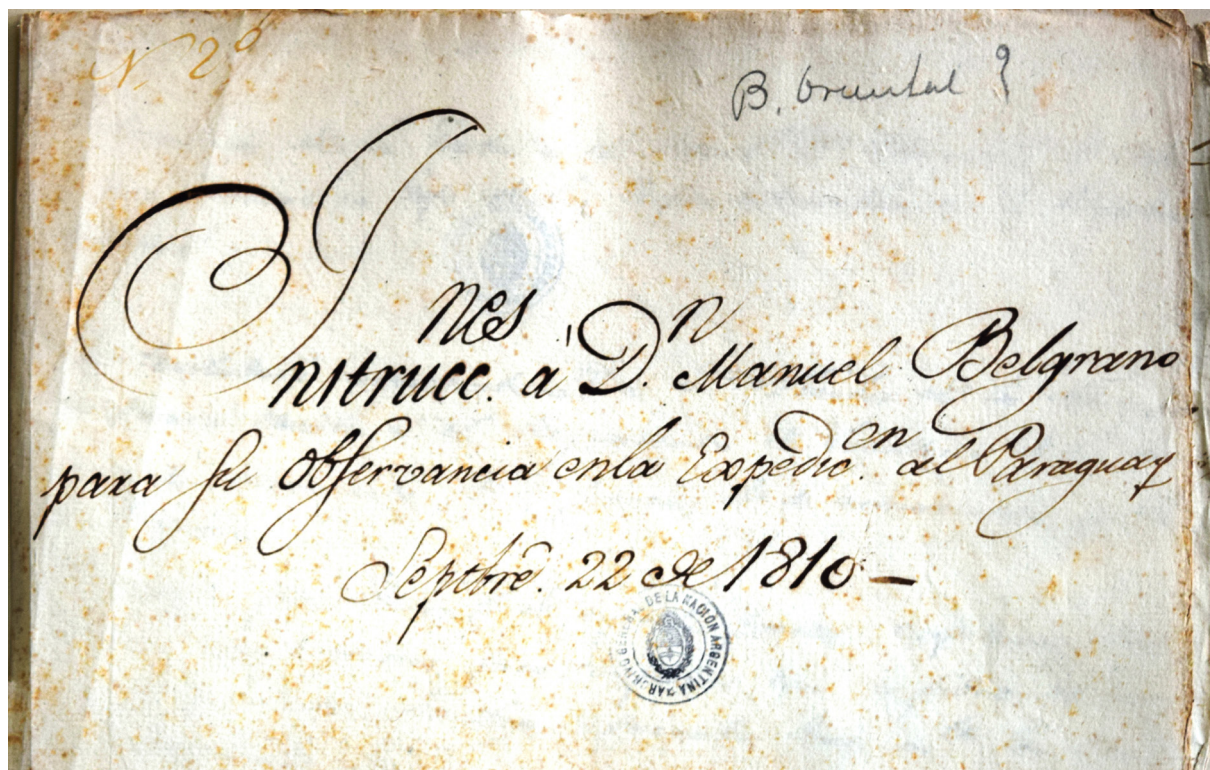 N. 20
B. Oriental ?
Instrucc.nes á D.n Manuel Belgrano
para su Observancia enla Expedic.en al Paraguay
Septbre. 22 de 1810-
ARCHIVO GENERAL DE LA NACION ARGENTINA